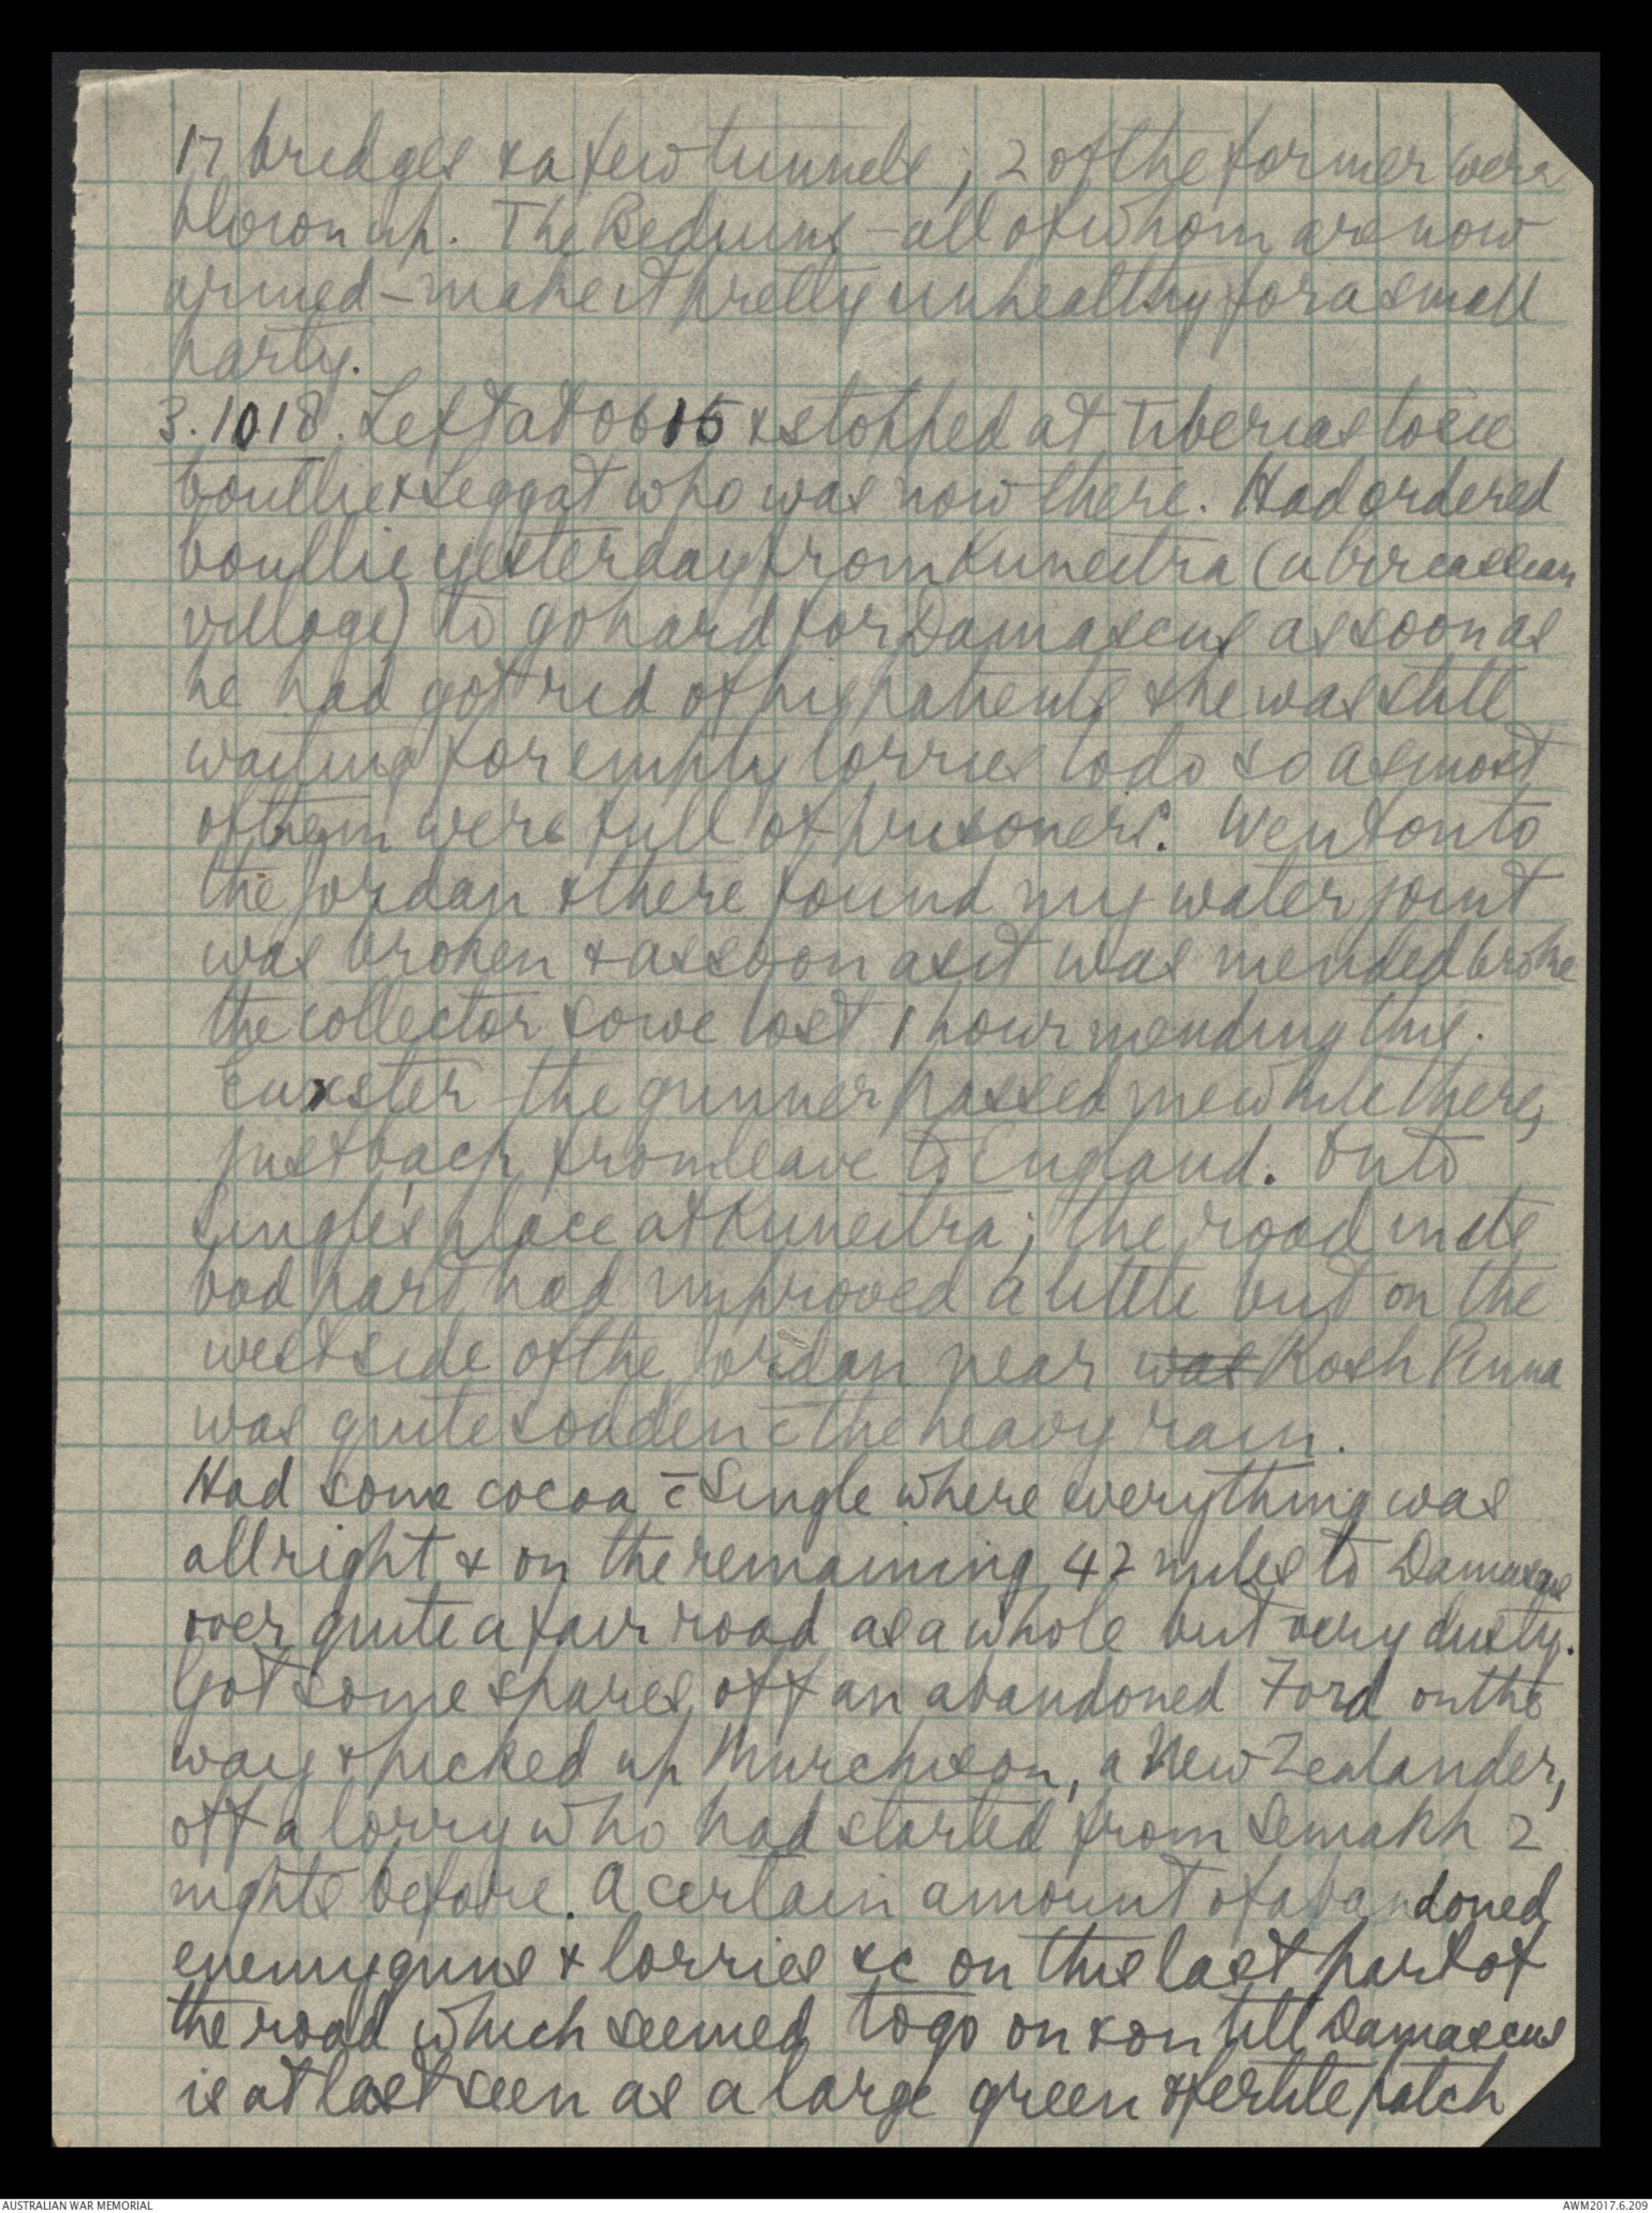 17 bridges & a few tunnels; 2 of the former were
blown up. The Beduins – all of whom are now
armed – make it pretty unhealthy for a small
party.
3.10.18. Left at 0615 & stopped at Tiberias to see
& Leggat who was now there. Had ordered
yesterday from Kuneitra (a Circassian
village) to go hard for Damascus as soon as
he had got rid of his patients & he was still
waiting for empty lorries to do so as most
of them were full of prisoners. Went on to
the Jordan & there found my water joint
was broken & as soon as it was mended broke
the collector so we lost 1 hour mending this.
the gunner passed me while there,
just back from leave to England. On to
Single's place at Kuneitra; the road in its
bad part had improved a little but on the
west side of the Jordan near was Rosh Pinna
was quite sodden c̄ the heavy rain.
Had some cocoa c̄ Single where everything was
all right & on the remaining 42 miles to Damascus
over quite a fair road as a whole but very dusty.
Got some spares off an abandoned Ford on the
way & picked up Murchison, a New Zealander,
off a lorry who had started from Semakh 2
nights before. A certain amount of abandoned
enemy guns & lorries &c on this last part of
the road which seemed to go on & on till Damascus
is at last seen as a large green & fertile patch
AUSTRALIAN WAR MEMORIAL
AWM2017.6.209